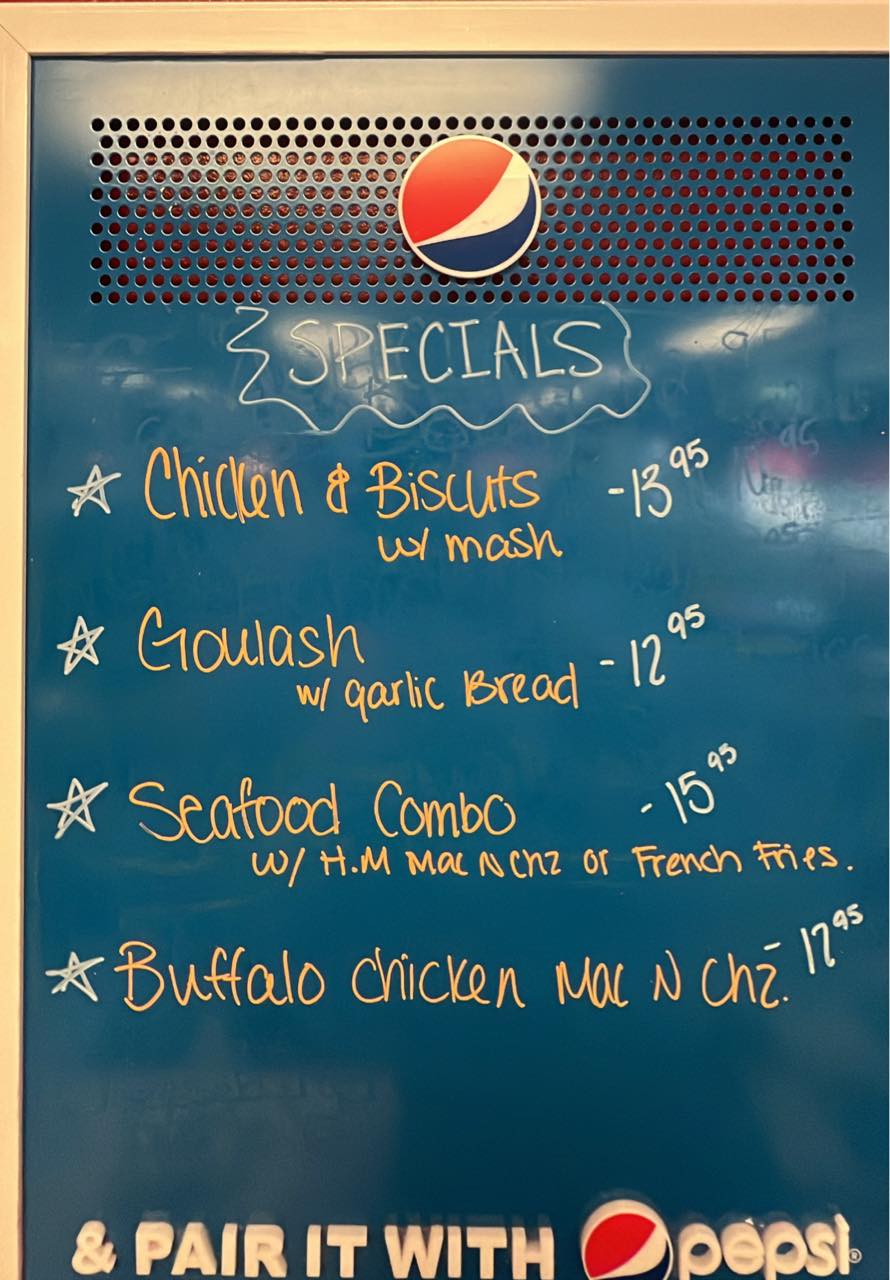 SPECIALS
☆ Chicken & Biscuts -13⁹⁵
w/ mash
☆ Goulash -12⁹⁵
w/ garlic Bread
☆ Seafood Combo -15⁹⁵
w/ H.M Mac N Chz or French Fries.
☆ Buffalo chicken Mac N Chz. -12⁹⁵
& PAIR IT WITH pepsi®